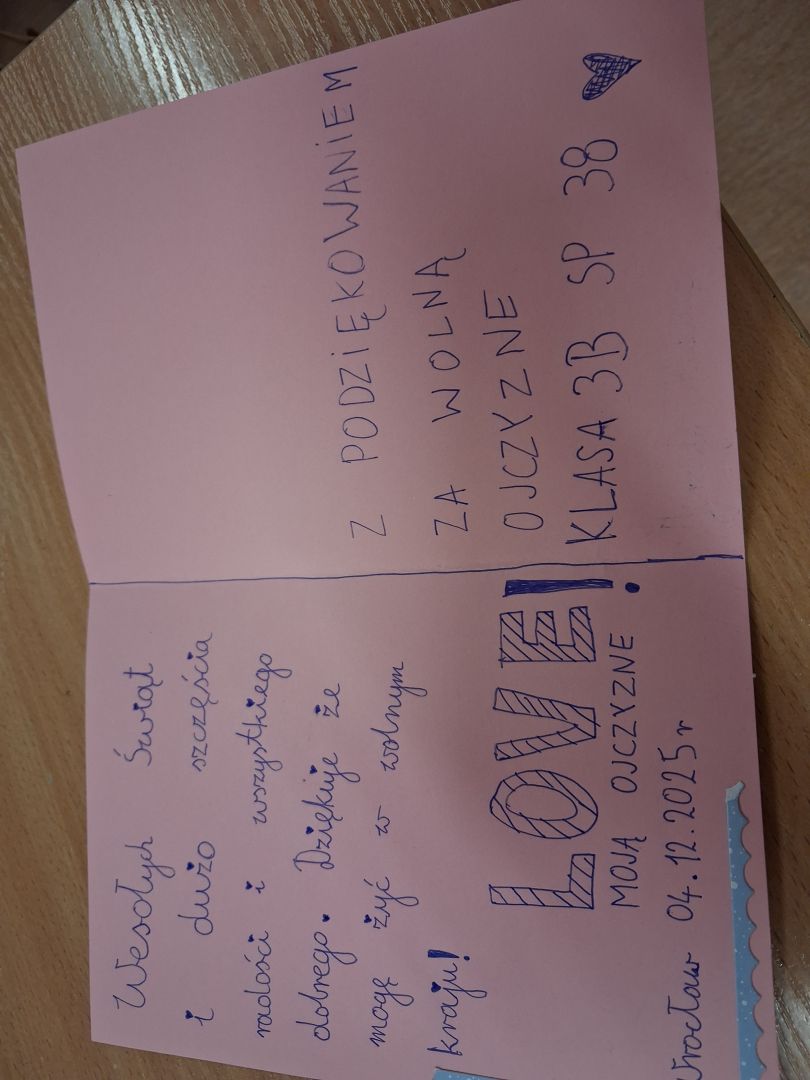 Wesołych Świąt
i dużo szczęścia
radości i wszystkiego
dobrego. Dziękuje że
mogę żyć w wolnym
kraju!
LOVE!
MOJĄ OJCZYZNE
Wrocław 04.12.2025r
Z PODZIĘKOWANIEM
ZA WOLNĄ
OJCZYZNE
KLASA 3B SP 38